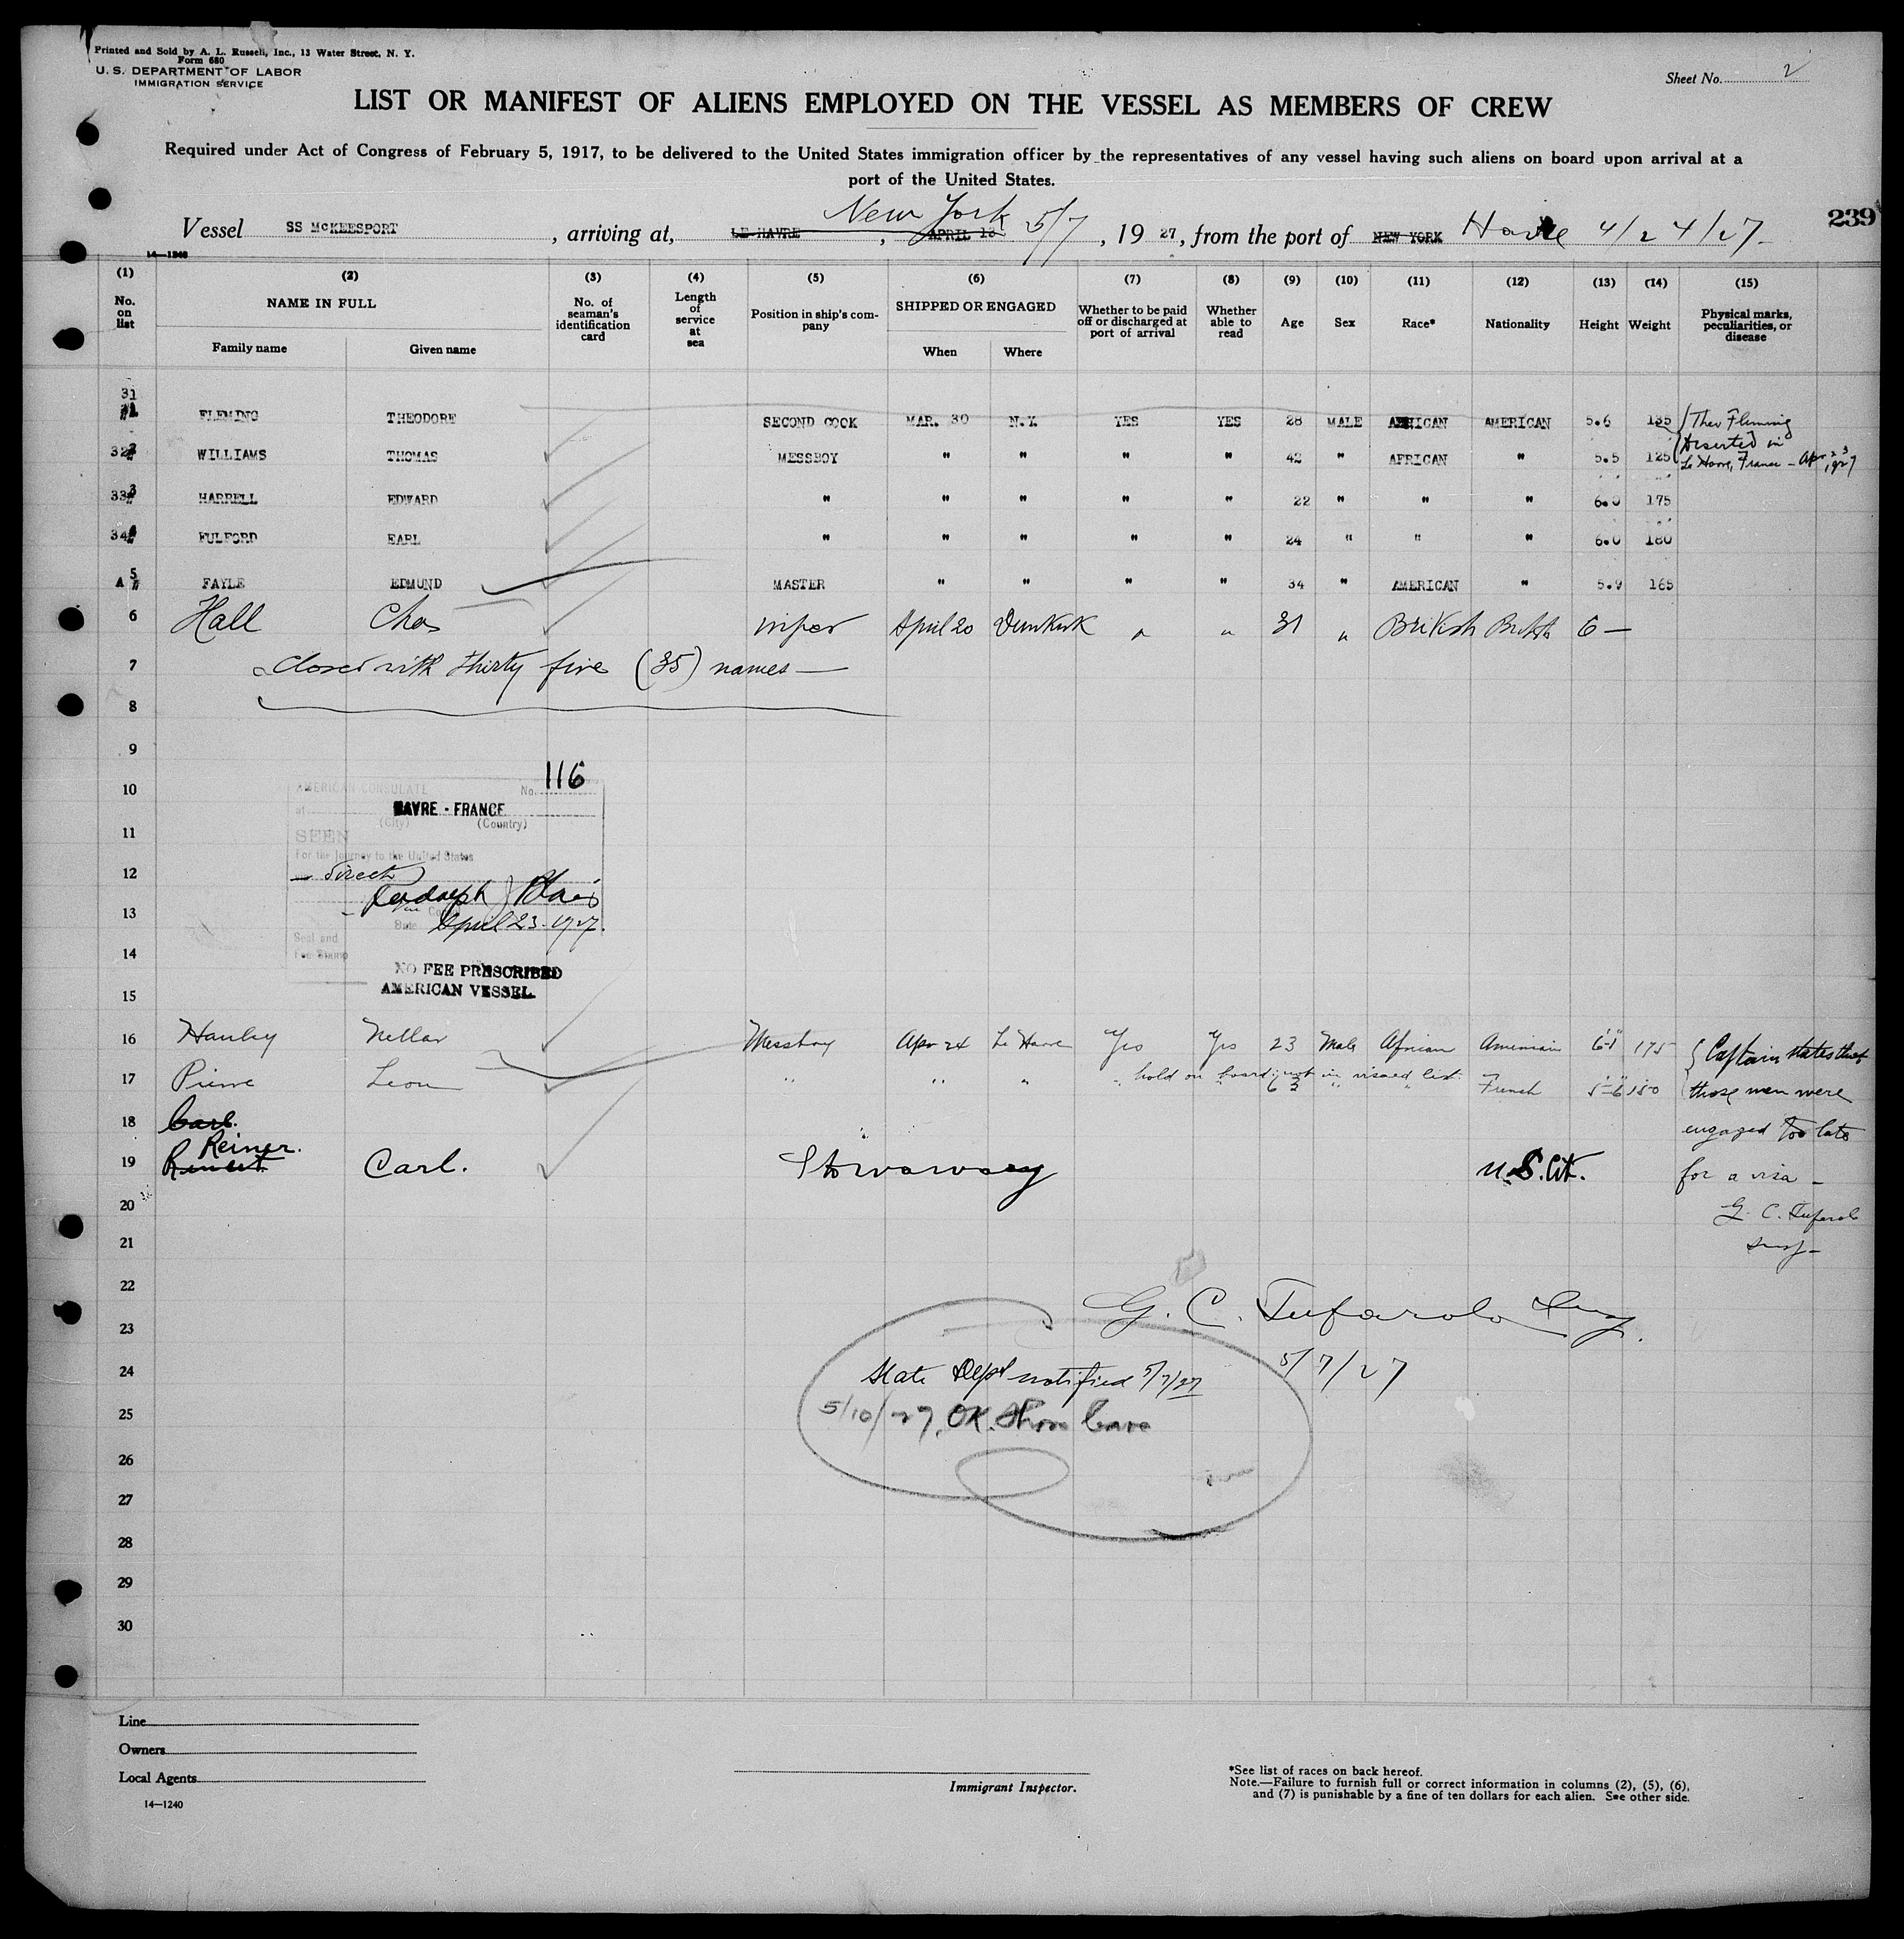 Printed and Sold by A. L. Russell, Inc., 13 Water Street, N. Y.
Form 680
U. S. DEPARTMENT OF LABOR
IMMIGRATION SERVICE
Sheet No. 2
LIST OR MANIFEST OF ALIENS EMPLOYED ON THE VESSEL AS MEMBERS OF CREW
Required under Act of Congress of February 5, 1917, to be delivered to the United States immigration officer by the representatives of any vessel having such aliens on board upon arrival at a
port of the United States.
239
New York
Vessel SS McKEESPORT, arriving at, LE HAVRE, APRIL 13 5/7, 1927, from the port of NEW YORK Havre 4/24/27
14—1240
(1) (2) (3) (4) (5) (6) (7) (8) (9) (10) (11) (12) (13) (14) (15)
No. on list
NAME IN FULL
Family name Given name
No. of seaman's identification card
Length of service at sea
Position in ship's company
SHIPPED OR ENGAGED
When Where
Whether to be paid off or discharged at port of arrival
Whether able to read
Age
Sex
Race*
Nationality
Height
Weight
Physical marks, peculiarities, or disease
31 FLEMING THEODORE SECOND COOK MAR. 30 N.Y. YES YES 28 MALE AFRICAN AMERICAN 5.6 135 Theo Fleming
deserted in
Le Havre, France - Apr 23 1927
32 WILLIAMS THOMAS MESSBOY " " " " 42 " AFRICAN " 5.5 125
33 HARRELL EDWARD " " " " " 22 " " " 6.0 175
34 FULFORD EARL " " " " " 24 " " " 6.0 180
A 5 FAYLE EDMUND MASTER " " " " 34 " AMERICAN " 5.9 165
6 Hall Chas April 20 Dunkirk " " 31 " British British 6 —
7 Closed with thirty five (35) names —
8
9
10
11
12
13
14
15
AMERICAN CONSULATE No. 116
at HAVRE - FRANCE
(City) (Country)
SEEN
For the journey to the United States
direct
Rudolph Blais
Date April 23 - 1927.
Seal and
Fee Stamp
NO FEE PRESCRIBED
AMERICAN VESSEL
16 Hanley Messboy Apr 24 Le Havre Yes Yes 23 Male African American 6-1" 175 Captain states that
hold on board: not in visaed list
17 Pierre Leon " " " " " " " French 5-6 150 those men were
18 Carl. engaged too late
Reiner.
19 Carl. Stowaway U.S. Cit. for a visa —
20 G. C. Tufarolo
21 Insp —
22 G. C. Tufarolo Insp.
23
24 State Dept notified 5/7/27 5/7/27
25 5/10/27, OK.
26
27
28
29
30
Line
Owners
Local Agents
14—1240
Immigrant Inspector.
*See list of races on back hereof.
Note.—Failure to furnish full or correct information in columns (2), (5), (6),
and (7) is punishable by a fine of ten dollars for each alien. See other side.